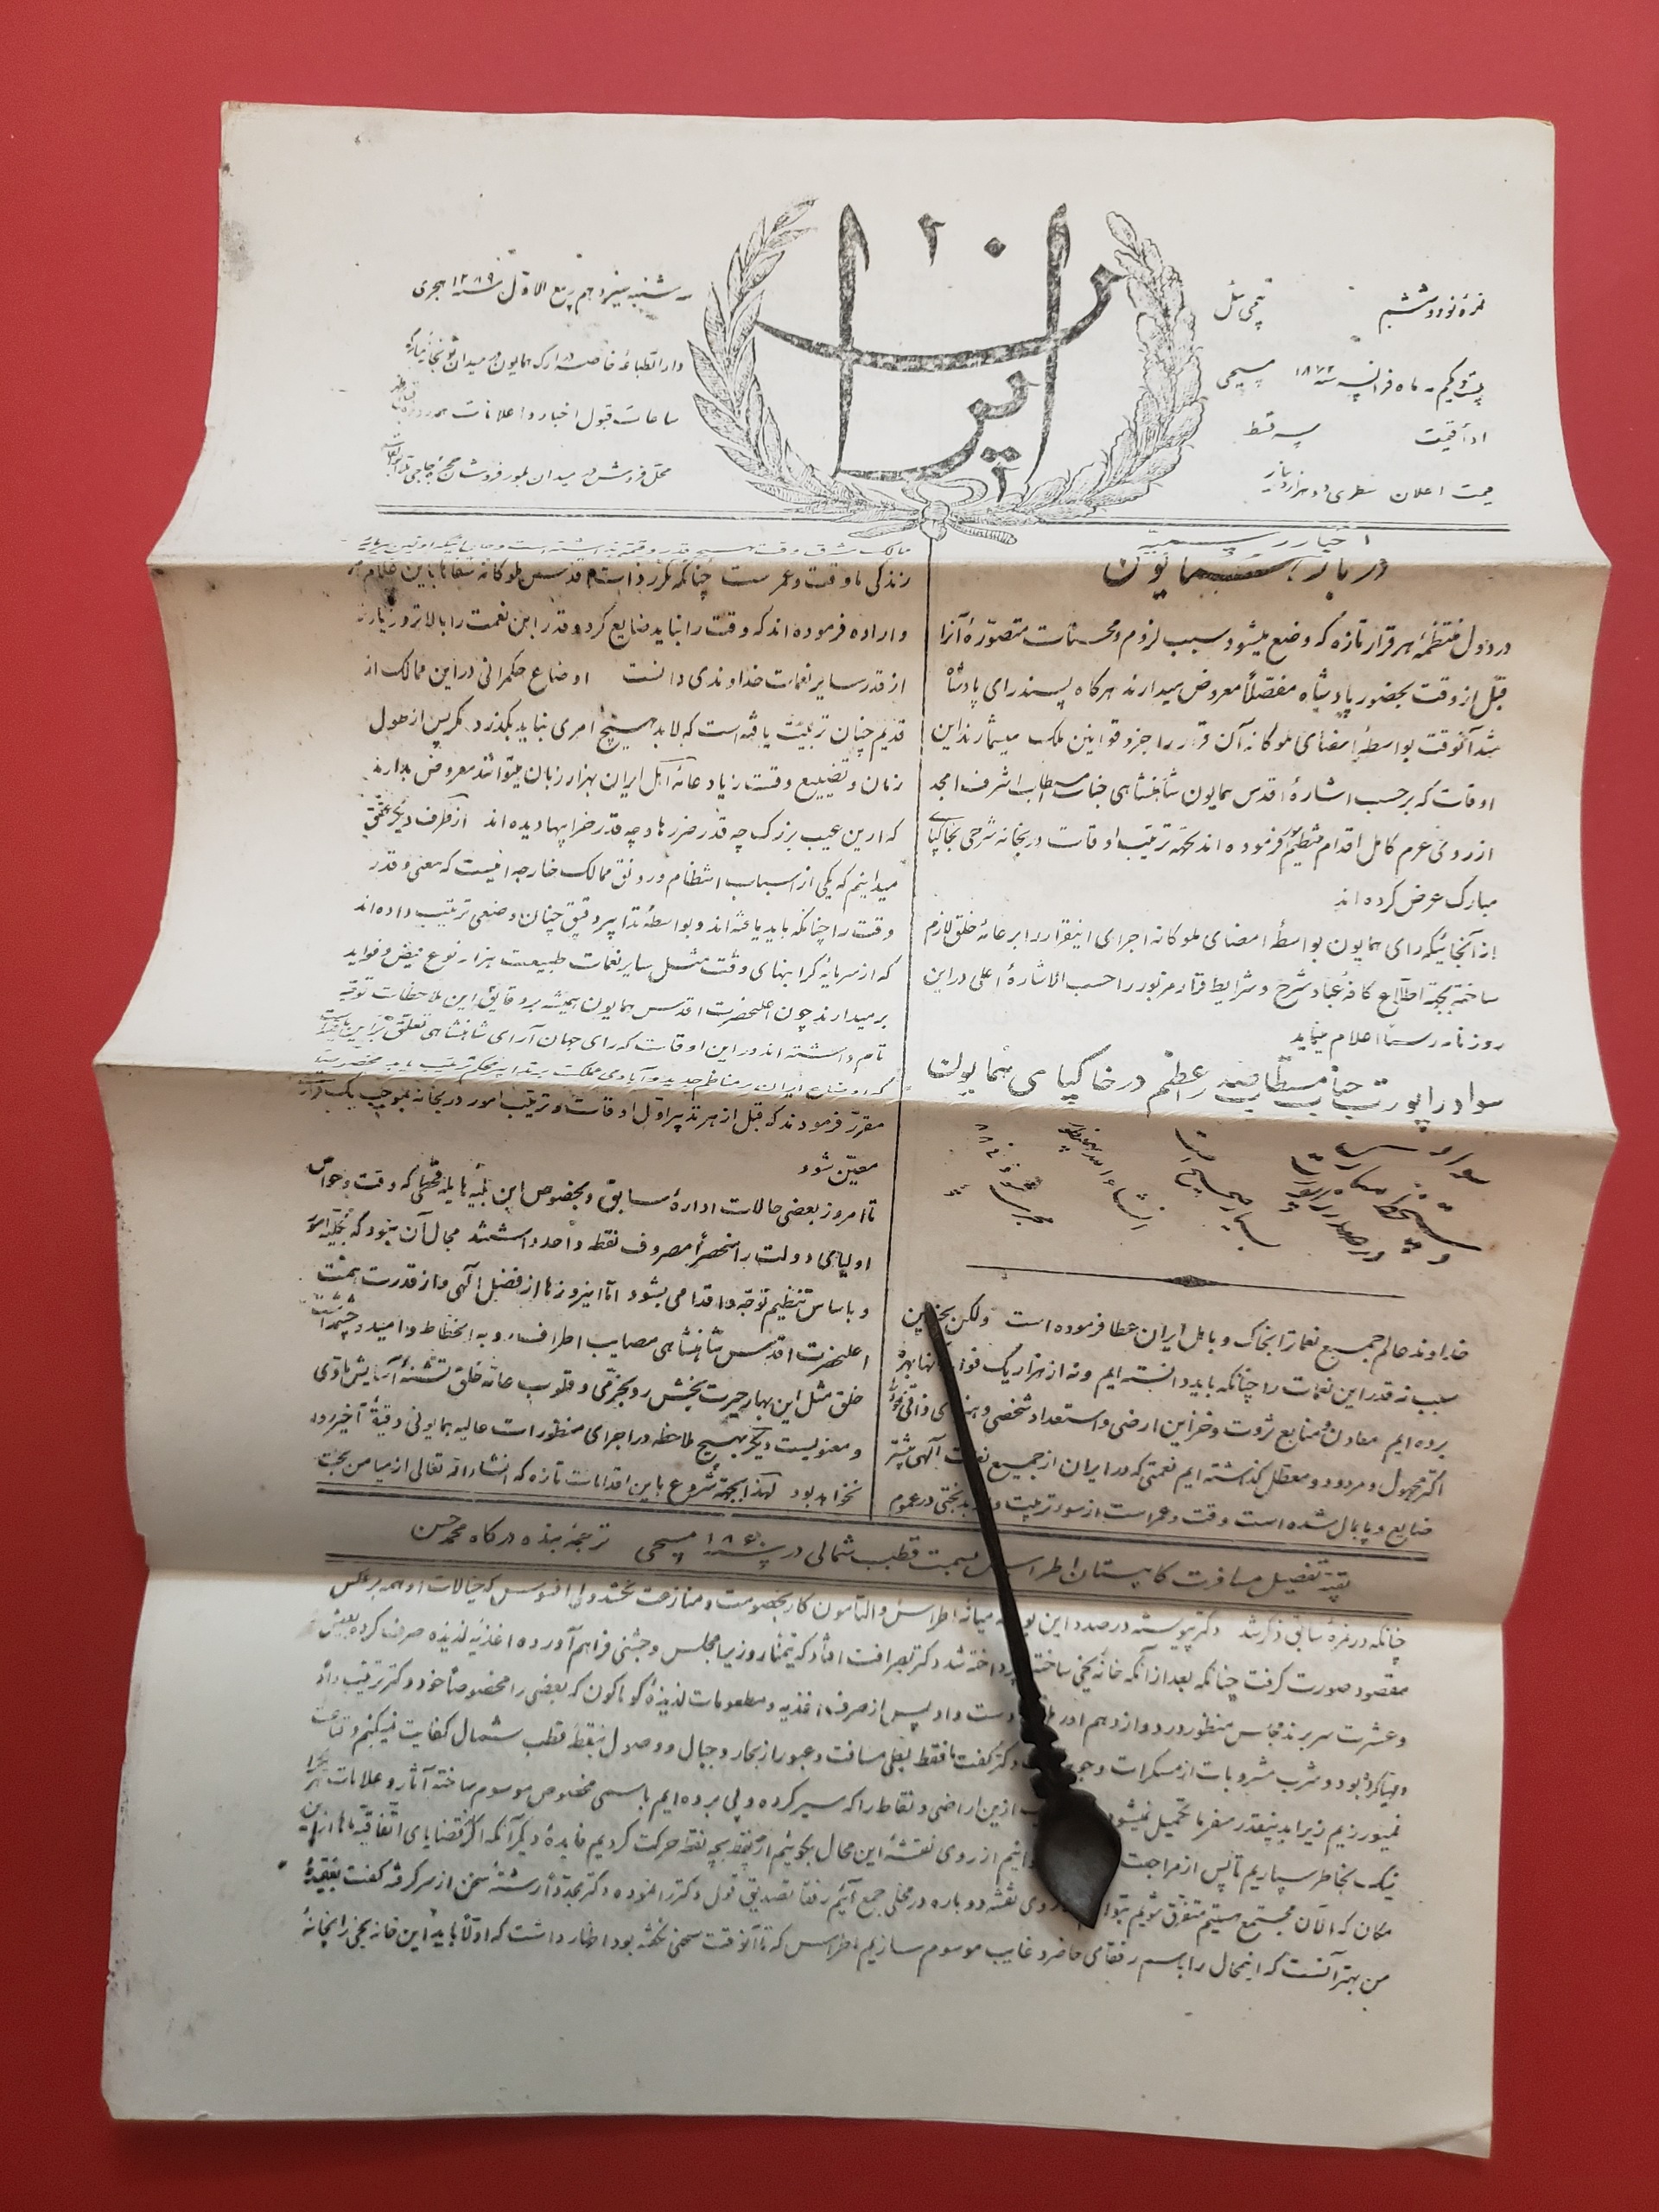 ایران
نمرهٔ نود و ششم
سه شنبه سیزدهم ربیع الاول سنه ۱۲۸۹ هجری
بیست و یکم ماه فرانسه سنه ۱۸۷۲ مسیحی
دار الطباعهٔ خاصه در ارک همایون در میدان توپخانه مبارکه
ادأ قیمت سه قسط
ساعات قبول اخبار و اعلانات همه روزه
قیمت اعلان سطری دو هزار دینار
محل فروش در میدان بلور فروشان
اخبار رسمیه
دربار همایون
در دول منتظمه هر قرار تازه که وضع میشود سبب لزوم و محسنات متصوّرهٔ آنرا
قبل از وقت بحضور پادشاه مفصّلاً معروض میدارند هرگاه پسند رای پادشاه
شد آنوقت بواسطهٔ امضای ملوکانه آن قرار را جزو قوانین ملک میشمارند این
اوقات که بر حسب اشارهٔ اقدس همایون شاهنشاهی جناب مستطاب اشرف امجد
از روی عزم کامل اقدام فرموده اند بجهة ترتیب اوقات دربخانه شرحی بخاکپای
مبارک عرض کرده اند
از آنجائیکه رای همایون بواسطهٔ امضای ملوکانه اجرای اینقرار را بر عامهٔ خلق لازم
ساخته بجهة اطّلاع کافهٔ عباد شرح و شرایط قرار مزبور را حسب الاشارهٔ اعلی در این
روزنامه رسماً اعلام مینماید
سواد راپورت جناب مستطاب صدر اعظم در خاکپای همایونست
سواد
دستخط مبارک
در صدر راپورت
بسیار صحیح است
انشاء الله
خداوند عالم جمیع نعمات را بخاک و باهل ایران عطا فرموده است ولکن بچندین
سبب نه قدر این نعمات را چنانکه باید دانسته ایم و نه از هزار یک فواید آنها بهره
برده ایم معادن و منابع ثروت و خزاین ارضی و استعداد شخصی و هنرهای ذاتی خود را
اکثر مجهول و مردود و معطل گذاشته ایم نعمتی که در ایران از جمیع نعمات آلهی بیشتر
ضایع و پایمال شده است وقت و عمر است از سوء تربیت و از بدبختی در عموم
ممالک شرق وقت هیچ قدر و قیمت نداشته است و حال آنکه اولین سرمایه
زندگی ما وقت و عمر ست چنانکه مکرّر ذات اقدس ملوکانه شفاهاً باین غلام امر
و اراده فرموده اند که وقت را نباید ضایع کرد و قدر این نعمت را بالاتر و زیادتر
از قدر سایر نعمات خداوندی دانست اوضاع حکمرانی در این ممالک از
قدیم چنان تربیت یافته است که لابد هیچ امری نباید بگذرد مگر پس از طول
زمان و تضییع وقت زیاد عامهٔ اهل ایران بهزار زبان میتوانند معروض بدارند
که از این عیب بزرگ چه قدر ضررها و چه قدر خرابیها دیده اند از طرف دیگر بتحقیق
میدانیم که یکی از اسباب انتظام و رونق ممالک خارجه اینست که معنی و قدر
وقت را چنانکه باید یافته اند و بواسطهٔ تدابیر دقیق چنان وضعی ترتیب داده اند
که از سرمایهٔ گرانبهای وقت مثل سایر نعمات طبیعت هزار نوع فیض و فواید
برمیدارند چون اعلیحضرت اقدس همایون همیشه بر دقایق این ملاحظات توجّه
تام داشته اند و در این اوقات که رای جهان آرای شاهنشاهی تعلّق بر این یافته است
که اوضاع ایران در مناظم جدید و آبادی مملکت بتدابیر محکم ترتیب یابد
مقرّر فرمودند که قبل از هر تدبیر اوّل اوقات و ترتیب امور دربخانه بموجب یک قرار
معیّن شود
تا امروز بعضی حالات ادارهٔ سابق و بخصوص این بلیهٔ هایلهٔ قحطی که وقت و حواس
اولیای دولت را منحصراً مصروف نقطهٔ واحد داشتند مجال آن نبود که بکلیهٔ امور
و باساس تنظیم توجّه و اقدامی بشود امّا امروزها از فضل الهی و از قدرت همّت
اعلیحضرت اقدس شاهنشاهی مصایب اطراف رو به انحطاط و امید و چشمداشت
خلق مثل این بهار حیرت بخش رو بخرّمی و قلوب عامهٔ خلق تشنهٔ آسایش مادّی
و معنویست دیگر بهیچ ملاحظه در اجرای منظورات عالیه همایونی دقیقهٔ تأخیر روا
نخواهد بود لهذا بجهة شروع باین اقدامات تازه که انشاء الله تعالی از میامن بخت
بقیّهٔ تفصیل مسافرت کاپیتان اطراس بسمت قطب شمالی در سنه ۱۸۶۰ مسیحی ترجمهٔ بندهٔ درگاه محمد حسن
چنانکه در نمرهٔ سابق ذکر شد دکتر پیوسته در صدد این بود که میانهٔ اطراس و التامون کار بخصومت و منازعت نکشد ولی افسوس که خیالات او همه بر عکس
مقصود صورت گرفت چنانکه بعد از آنکه خانهٔ یخی ساخته و پرداخته شد دکتر بصرافت افتاد که یکروز را مجلس و جشنی فراهم آورده اغذیهٔ لذیذه صرف کرده بعیش
و عشرت سر برند مجلس منظور در دوازدهم اور دست داد پس از صرف اغذیه و مطعومات لذیذهٔ گوناگون که بعضی را مخصوصاً خود دکتر ترتیب داده
و مهیا کرده بود و شرب مشروبات از مسکرات و دکتر گفت ما فقط بطی مسافت و عبور از بحار و جبال و وصول بنقطهٔ قطب شمال کفایت نمیکنیم و قناعت
نمیورزیم زیرا بدینقدر سفر ما تکمیل نمیشود از این اراضی و نقاط را که سیر کرده و پی برده ایم باسمی مخصوص موسوم ساخته آثار و علامات هر یک را
نیک بخاطر سپاریم تا پس از مراجعت از روی نقشه این محال بجوئیم از چه نقطه بچه نقطه حرکت کردیم فایدهٔ دیگر آنکه اگر قضایای اتّفاقیّه ما را از این
مکان که الآن مجتمع هستیم متفرّق شویم بتوانیم از روی نقشه دوباره در محلی جمع آئیم رفقا تصدیق قول دکتر را نموده دکتر مجدداً رشتهٔ سخن از سر گرفته گفت بعقیدهٔ
من بهتر آنست که اینمحال را باسم رفقای حاضر و غایب موسوم سازیم اطراس که تا آنوقت سخنی نگفته بود اظهار داشت که اوّلاً باید این خانهٔ یخی را بخانهٔ